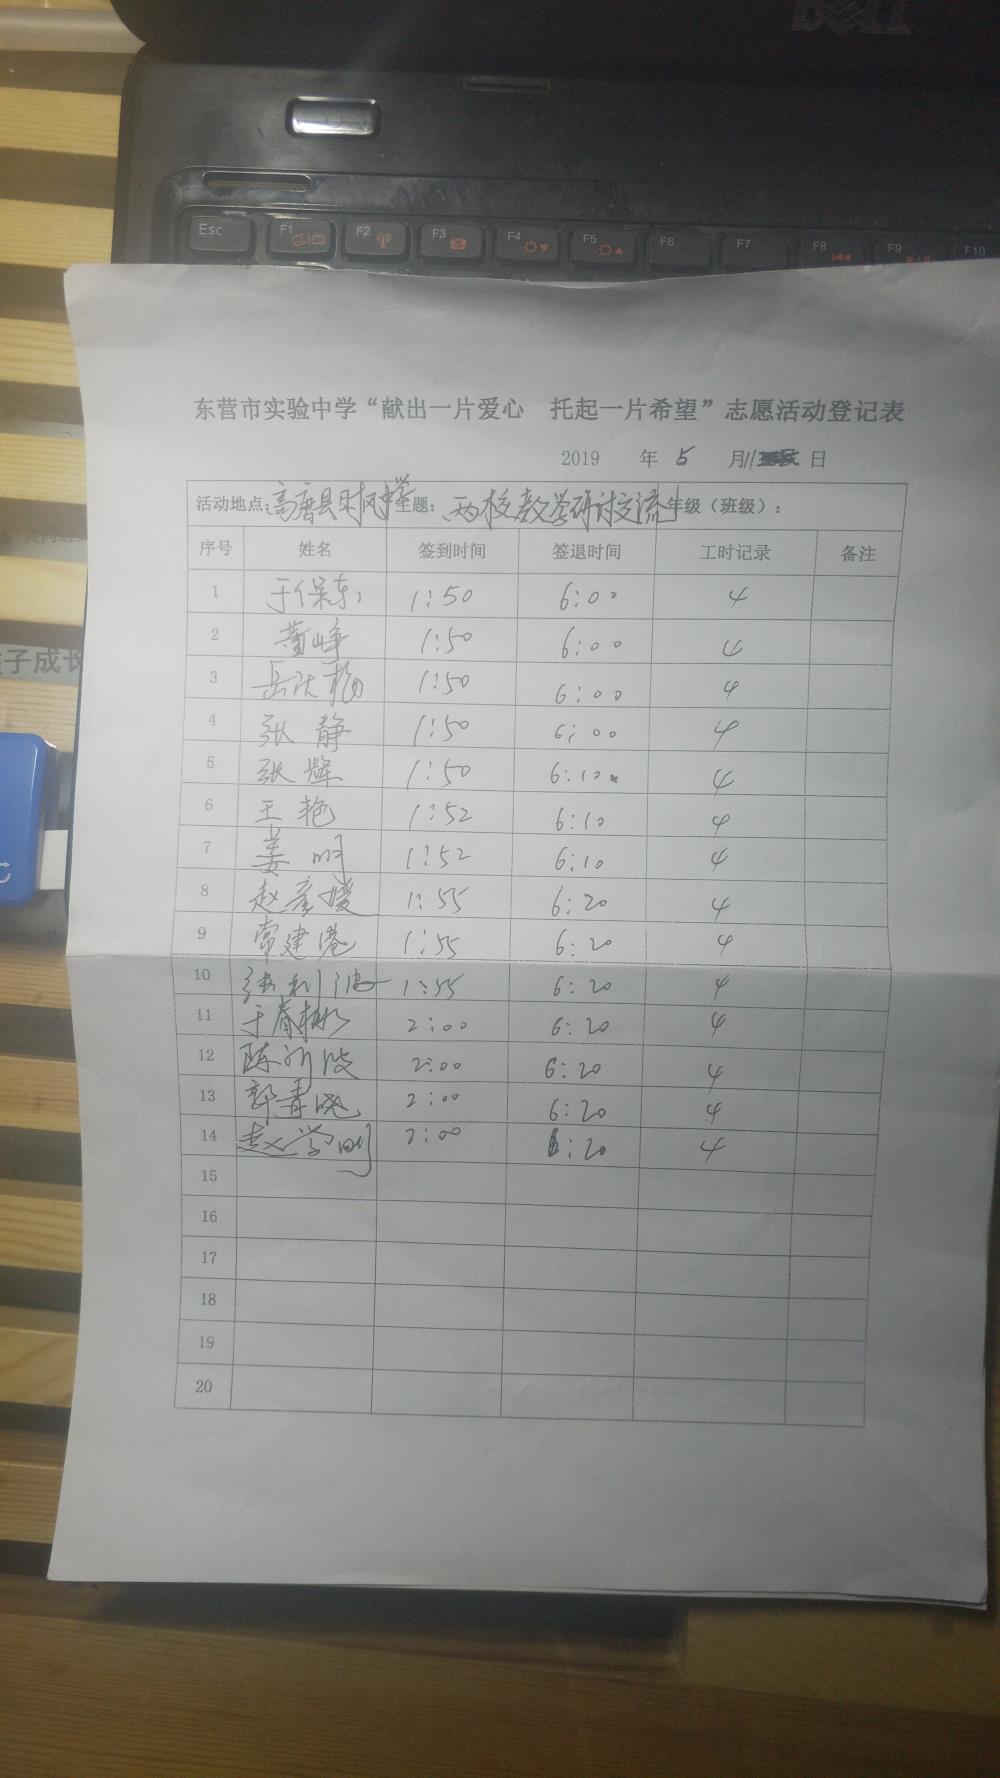 DELL
Esc F1 F2 F3 F4 F5 F6 F7 F8 F9 F10
东营市实验中学“献出一片爱心 托起一片希望”志愿活动登记表
2019 年 5 月 11 日
活动地点:高唐县时风中学 主题:两校教学研讨交流 年级(班级):
序号 姓名 签到时间 签退时间 工时记录 备注
1 于保东 1:50 6:00 4
2 董峰 1:50 6:00 4
3 1:50 6:00 4
4 张静 1:50 6:00 4
5 张辉 1:50 6:10 4
6 王艳 1:52 6:10 4
7 姜明 1:52 6:10 4
8 赵彦媛 1:55 6:20 4
9 常建港 1:55 6:20 4
10 张利波 1:55 6:20 4
11 于春彬 2:00 6:20 4
12 陈新波 2:00 6:20 4
13 郭青晓 2:00 6:20 4
14 赵学刚 2:00 6:20 4
15
16
17
18
19
20
子成长